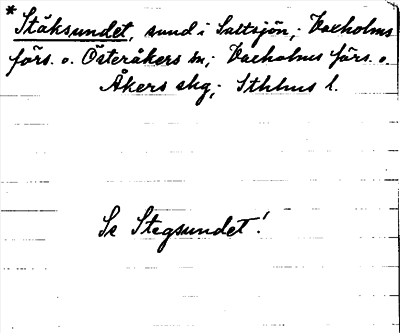 * Stäksundet, sund i Saltsjön,; Vaxholms
förs. o. Österåkers sn,; Vaxholms förs. o.
Åkers skg,; Sthlms l.
Se Stegsundet!